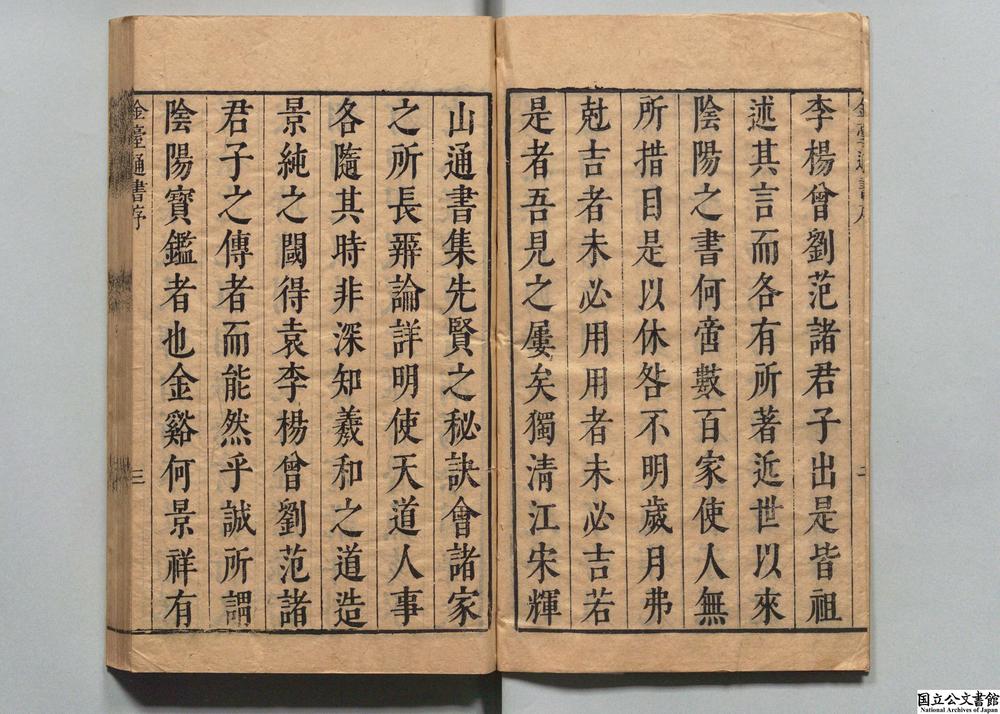 李楊曾劉范諸君子出是皆祖
述其言而各有所著近世以來
陰陽之書何啻數百家使人無
所措目是以休咎不明歲月弗
尅吉者未必用用者未必吉若
是者吾見之屢矣獨淸江宋輝
山通書集先賢之秘訣會諸家
之所長辨論詳明使天道人事
各隨其時非深知羲和之道造
景純之閫得袁李楊曾劉范諸
君子之傳者而能然乎誠所謂
陰陽寶鑑者也金谿何景祥有
金臺通書序
三
国立公文書館
National Archives of Japan